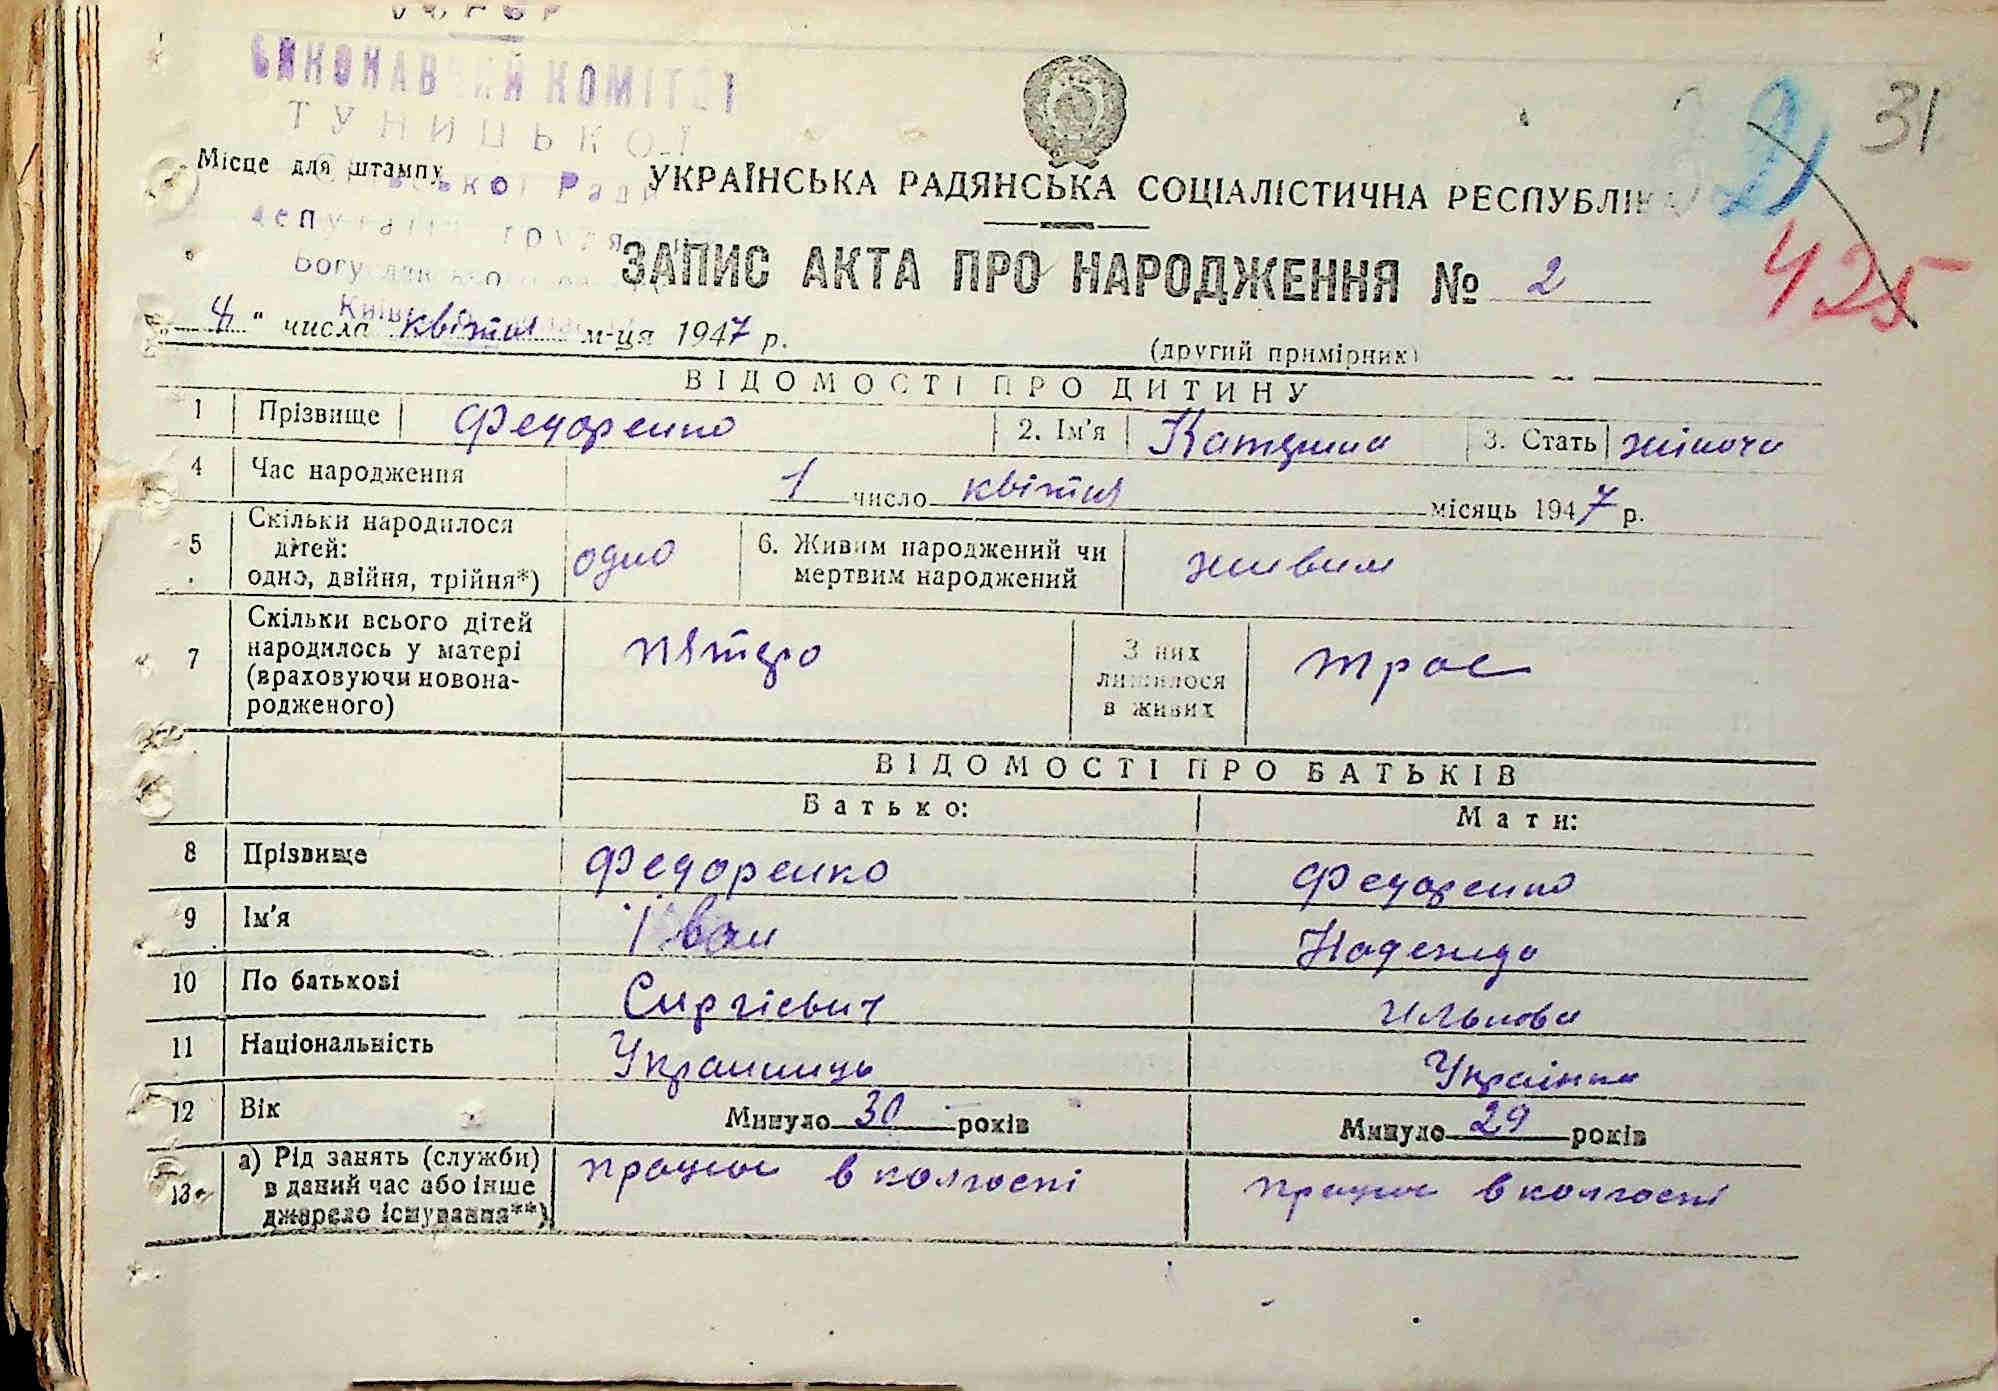 ВИКОНАВЧИЙ КОМІТЕТ
ТУНИЦЬКОЇ
Місце для штампу
Ради
31
УКРАЇНСЬКА РАДЯНСЬКА СОЦІАЛІСТИЧНА РЕСПУБЛІКА
ЗАПИС АКТА ПРО НАРОДЖЕННЯ № 2
425
4 " числа квітня м-ця 1947 р.
(другий примірник)
ВІДОМОСТІ ПРО ДИТИНУ
1 Прізвище Федоренко 2. Ім'я Катерина 3. Стать жіноча
4 Час народження 1 число квітня місяць 1947 р.
5 Скільки народилося дітей: одно, двійня, трійня*) одно 6. Живим народжений чи мертвим народжений живим
7 Скільки всього дітей народилось у матері (враховуючи новонародженого) пятеро З них лишилося в живих троє
ВІДОМОСТІ ПРО БАТЬКІВ
Батько: Мати:
8 Прізвище Федоренко Федоренко
9 Ім'я Іван Надежда
10 По батькові Сиргієвич Ильовна
11 Національність Украинець Українка
12 Вік Минуло 30 років Минуло 29 років
13 а) Рід занять (служби) в даний час або інше джерело існування**) працює в колгоспі працює в колгоспі